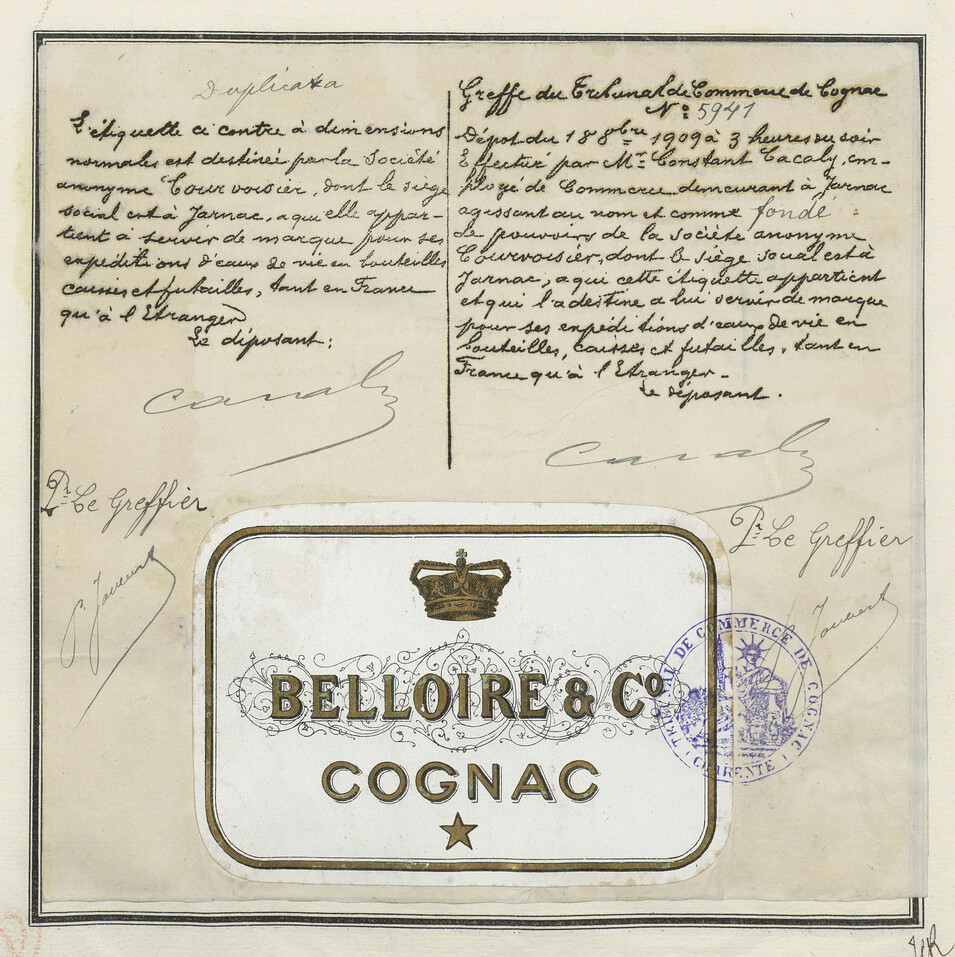 Duplicata
L'étiquette ci contre à dimensions
normales est destinée par la Société
anonyme Courvoisier, dont le siège
social est à Jarnac, a qui elle appar-
tient à servir de marque pour ses
expéditions d'eaux de vie en bouteilles
caisses et futailles, tant en France
qu'à l'Etranger
Le déposant:
Pr Le Greffier
Greffe du Tribunal de Commerce de Cognac
No 5941
Dépot du 18 8bre 1909 à 3 heures du soir
Effectué par Mr Constant Cacaly, em-
ployé de Commerce demeurant à Jarnac
agissant au nom et comme fondé
de pouvoirs de la Société anonyme
Courvoisier, dont le siège social est à
Jarnac, a qui cette étiquette appartient
et qui l'a destine a lui servir de marque
pour ses expéditions d'eaux de vie en
bouteilles, caisses et futailles, tant en
France qu'à l'Etranger_
Le déposant.
Pr Le Greffier
BELLOIRE & Co
COGNAC
TRIBUNAL DE COMMERCE DE COGNAC
(CHARENTE)